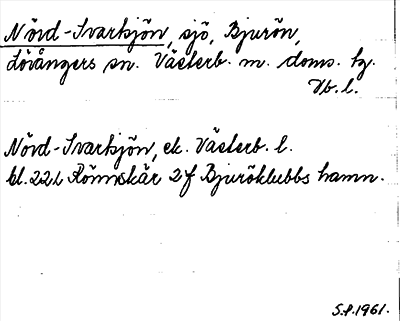 Nörd-Svartsjön, sjö, Bjurön,
Lövångers sn. Västerb. m. doms. tg.
Vb. l.
Nörd-Svartsjön, ek. Västerb. l.
bl. 221 Rönnskär 2f Bjuröklubbs hamn.
S.P. 1961.